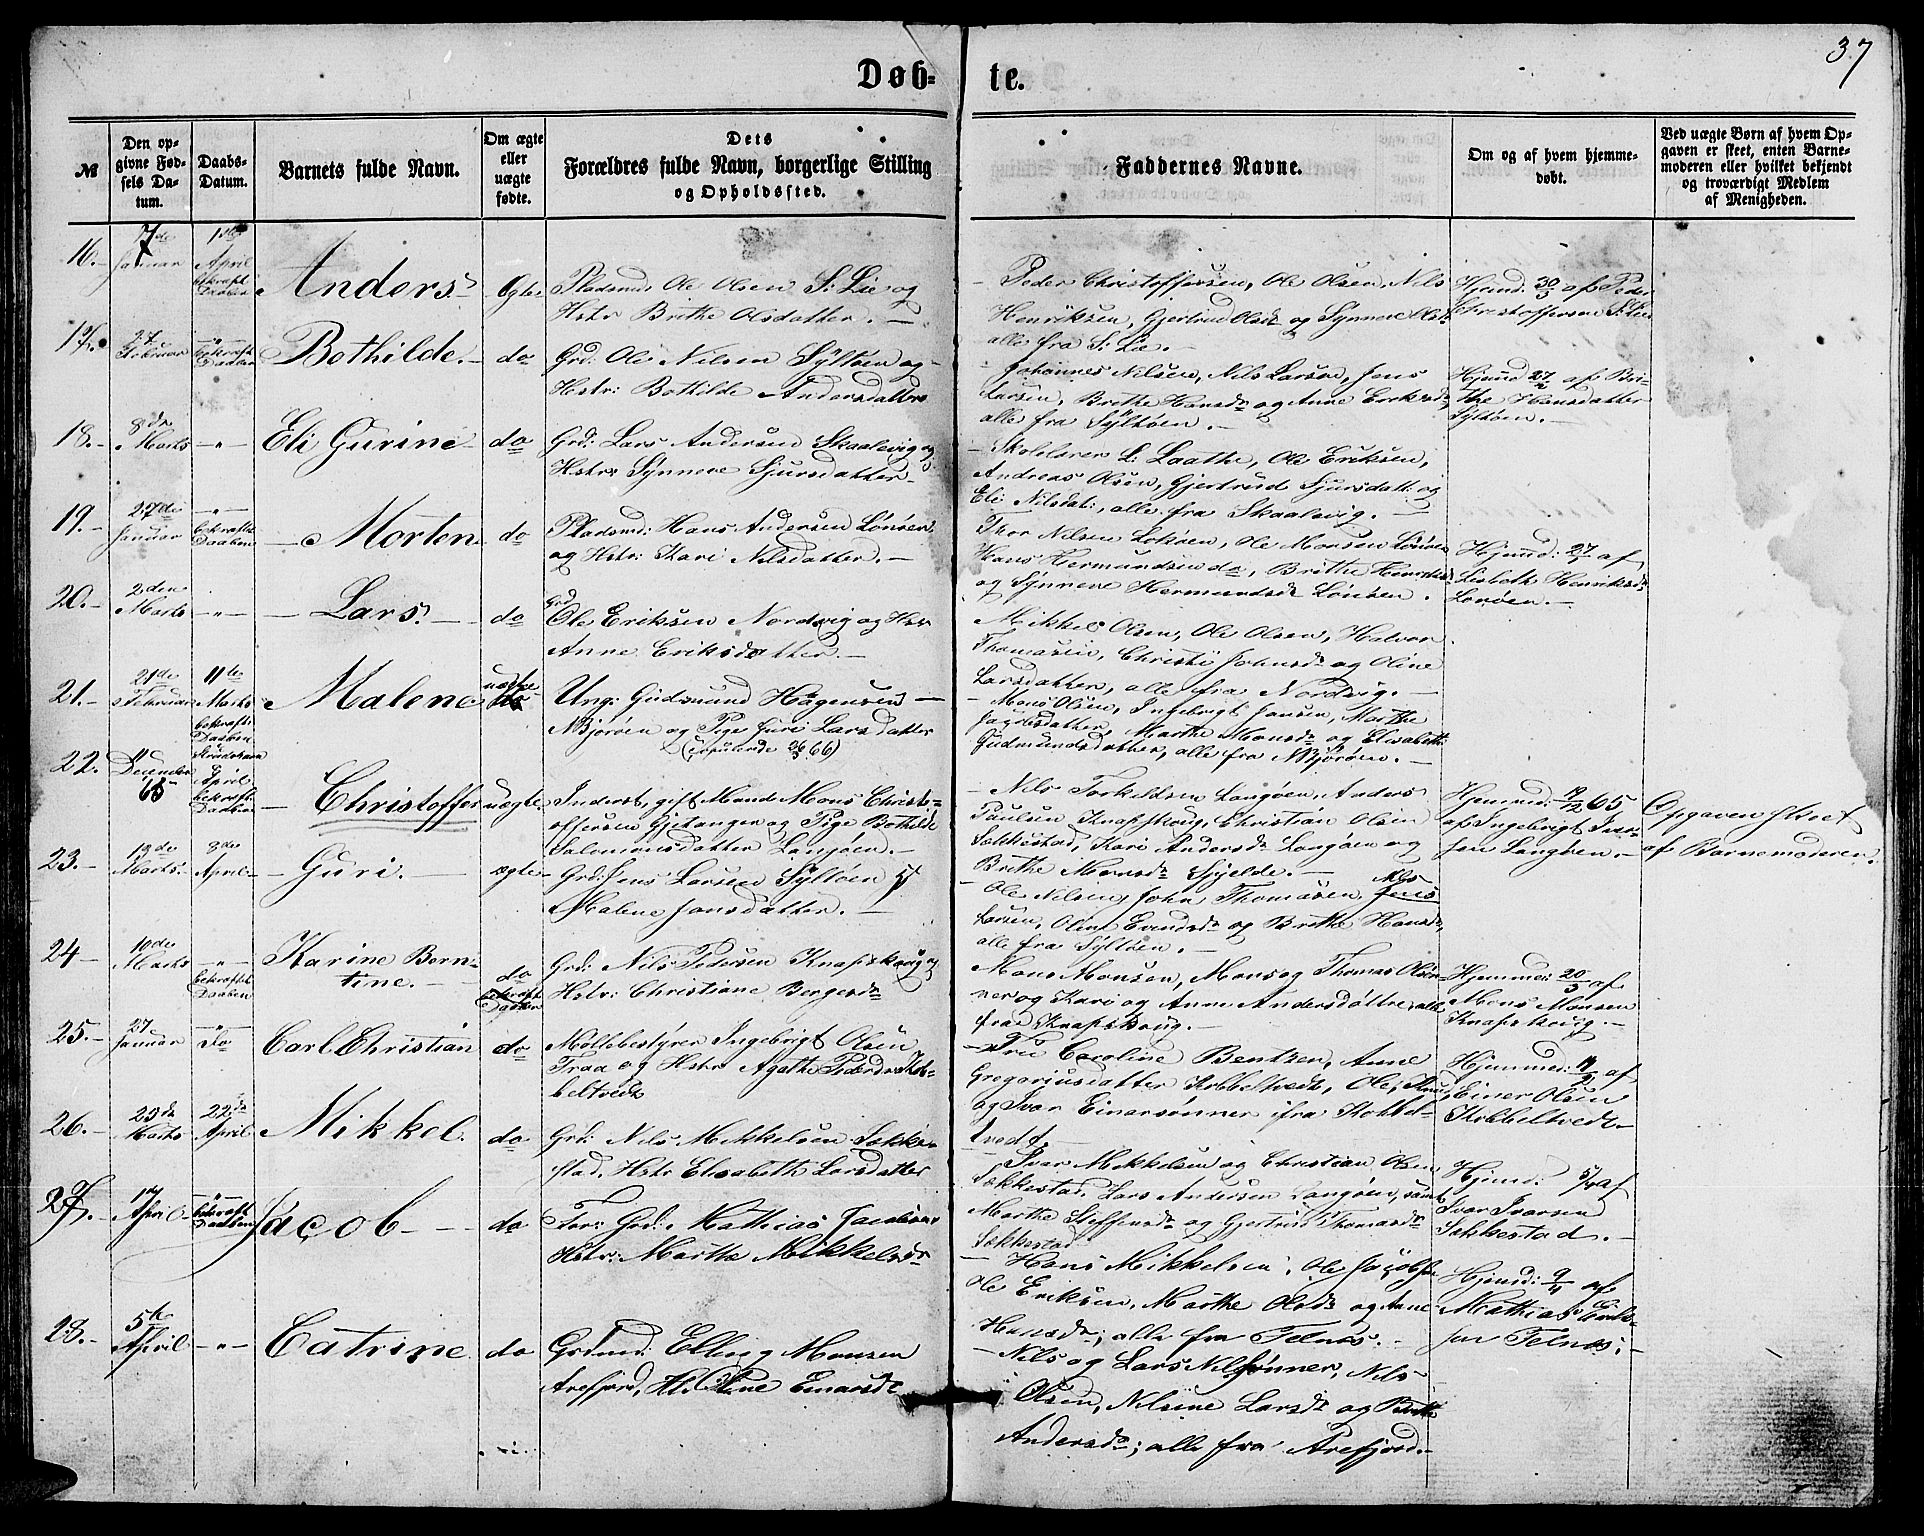 37
Døb-
te.
№
Den op-
givne Fød-
sels Da-
tum.
Daabs-
Datum.
Barnets fulde Navn.
Om ægte
eller
uægte
fødte.
Dets
Forældres fulde Navn, borgerlige Stilling
og Opholdssted.
Faddernes Navne.
Om og af hvem hjemme-
døbt.
Ved uægte Børn af hvem Op-
gaven er skeet, enten Barne-
moderen eller hvilket bekjendt
og troværdigt Medlem
af Menigheden.
16.-
7de
Januar
1ste
April
bekræft.
Daaben
Anders
Ægte
Pladsmd. Ole Olsen S. Lie og
Hstr Brithe Olsdatter. -
- Peder Christoffersen, Ole Olsen, Nils
Henriksen, Gjertrud Olsdr og Synneve Olsdr
alle fra S. Lie. -
Hjemd. 30/3 af Peder
Christoffersen S. Lie
17.
27
Februar
-"-
bekræft.
Daaben
Bothilde. -
do
Grd: Ole Nilsen Syltøen og
Hstr: Bothilde Andersdatter
- Johannes Nilsen, Nils Larsen, Jens
Larsen, Brithe Hansdr og Anne Eriksdr
alle fra Syltøen. -
Hjemd 27/2 af Bri-
the Hansdatter
Syltøen. -
18.-
8de
Marts
-"-
Eli Gurine
do
Grd: Lars Andersen Skaalevig og
Hstr Synneve Sjursdatter -
- Skolelærer L. Laathe, Ole Eriksen,
Andreas Olsen, Gjertrud Sjursdatt: og
Eli Nilsdat:, alle fra Skaalevig. -
19.-
27de
Januar
-"-
bekræft.
Daaben
- Morten
do
Pladsmd: Hans Andersen Lønøen
og Hstr: Kari Nilsdatter. -
Thor Nilsen Lokøen, Ole Monsen Lønøen
Hans Hermundsen do, Brithe Henriksdr
og Synneve Hermundsdr Lønøen.
Hjemd: 27/1 af
Lisbeth Henriksdr
Lønøen. -
20.-
2den
Marts
-"-
- Lars. -
do
Grd
Ole Eriksen Nordvig og Hstr
Anne Eriksdatter. -
Mikkel Olsen, Ole Olsen, Halvor
Thomasen, Christi Johnsdr og Oline
Larsdatter, alle fra Nordvig. -
21.-
21de
Februar
11te
Marts
bekræft.
Daaben
Malene
uægte
Ung: Gudmund Haagensen -
N Bjorøen og Pige Guri Larsdatter
- Mons Olsen, Ingebrigt Jansen, Marthe
Jacobsdatter, Marthe Monsdr og Elisabeth
Gudmundsdatter, alle fra N Bjorøen. -
22.
December
65
April
bekræft.
Daaben
- Christoffer
uægte.
Inderst, gift Mand Mons Christ-
offersen Gjetanger og Pige Bothilde
Salomonsdatter Langøen. -
- Nils Torkeldsen Langøen, Anders
Paulsen Knapskoug, Christian Olsen
Sækkestad, Kari Andersdr Langøen og
Brithe Monsdr Spjelde. -
Hjemmed: 65
af Ingebrigt Iver-
sen Langøen. -
Opgaven skeet
af Barnemoderen.
23.-
13de
Marts.
8de
April -
- Guri. -
ægte -
Grd: Jens Larsen Syltøen og
Malene Jansdatter. -
- Ole Nilsen, John Thomasen, Nils
Larsen, Oline Evindsdr og Brithe Hansdr,
alle fra Syltøen. -
24 -
10de
Marts
-"-
bekræft.
Daaben
Karine Bern-
tine. -
do
bekræft.
Daaben
Grd: Nils Pedersen Knapskoug og
Hstr: Christiane Bergersdr
Mons Monsen, Mons og Thomas Olsøn-
ner og Kari og Anne Andersdøttre, alle
fra Knapskoug. -
Hjemmed: 20/3 af
Mons Monsen
Knapskoug. -
25.-
27
Januar
-"-
Do
Carl Christian
do
Møllebestyrer Ingebrigt Olsen
Fraa og Hstr Agathe Kob-
beltvedt
- Fru Caroline Bentzen, Anne
Gregoriusdatter Kobbeltvedt, Ole, Knud
og Ivar Einarsønner ifra Kobbel-
tvedt. -
Hjemmed: 11/2 af
Einer Olsen
Kobbeltvedt -
26.-
29de
Marts
22de
April
Mikkel.
do
Grd: Nils Mikkelsen Sække-
stad, Hstr Elisabeth Larsdatter
Ivar Mikkelsen og Christian Olsen
Sækkestad, Lars Andersen Langøen, samt
Marthe Steffensdr og Gjertrud Thomasdr
Sækkestad
Hjemd: 5/4 af
Ivar Ivarsen
Sækkestad. -
27.-
April
-"-
bekræft.
Daaben
Jacob -
do
Far: Grd: Mathias Jacobsen
Hstr: Marthe Mikkelsdr
- Hans Mikkelsen, Ole Jacobsen
Ole Eriksen, Marthe Olsdr og Anne
Hansdr; alle fra Telnæs. -
Hjemd: 9/4 af
Mathias
sen Telnæs: -
28.-
5te
April
-"-
Catrine
do
Grdmd: Elling Monsen
Arefjord, H. Stine Einarsdr
- Nils og Lars Nilsønner, Nils
Olsen, Nilsine Larsdr og Brithe
Andersdr; alle fra Arefjord. -